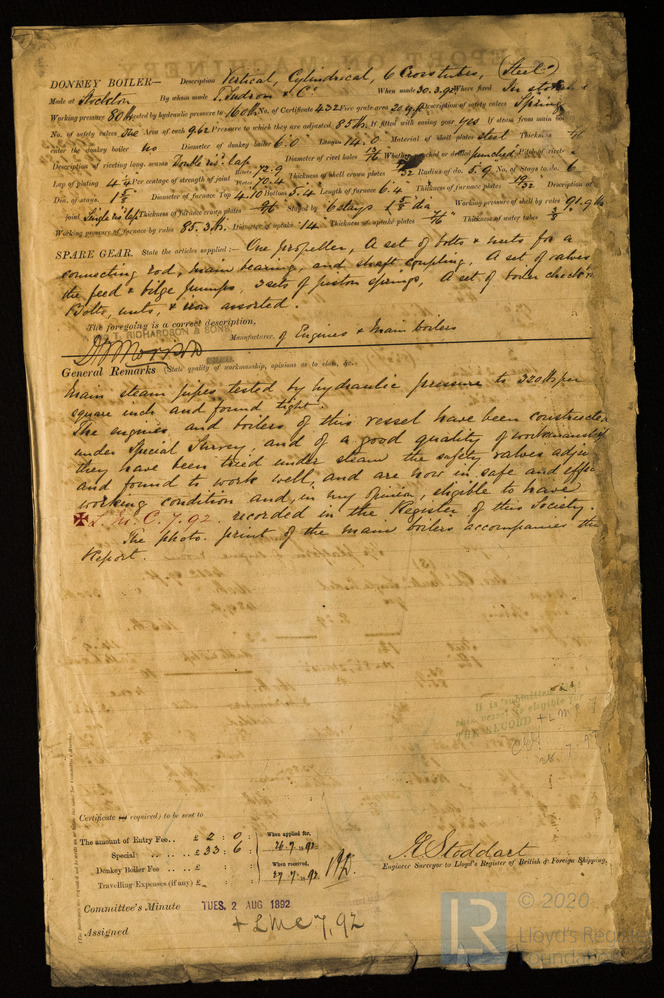 DONKEY BOILER— Description Vertical, Cylindrical, 6 Cross tubes, (Steel)
Made at Stockton By whom made T. Sudron & Co When made 30.3.92 Where fixed In stoke
Working pressure 80 lbs tested by hydraulic pressure to 160 lbs No. of Certificate 432 Fire grate area Description of safety valves Spring
No. of safety valves One Area of each 9.62 Pressure to which they are adjusted 85 lbs If fitted with easing gear yes If steam from main boi
enter the donkey boiler no Diameter of donkey boiler 6.0 Length 14.0 Material of shell plates Steel Thickness
Description of riveting long. seams Double riv. lap Diameter of rivet holes 13/16 Whether punched or drilled punched Pitch of rivets
Lap of plating 4 1/4 Per centage of strength of joint Rivets 72.9 Plates 70.4 Thickness of shell crown plates /32 Radius of do. 5.9 No. of Stays to do. 6
Dia. of stays. 1 5/8 Diameter of furnace Top 4.10 Bottom 5.4 Length of furnace 6.4 Thickness of furnace plates /32 Description of
joint Single riv. lap Thickness of furnace crown plates /16 Stayed by 6 stays 1 5/8 dia Working pressure of shell by rules 91.9 lbs
Working pressure of furnace by rules 85.3 lbs. Diameter of uptake 14 Thickness of uptake plates /16" Thickness of water tubes 3/8
SPARE GEAR. State the articles supplied:— One propeller, A set of bolts & nuts for a
connecting rod, main bearing, and shaft coupling, A set of valves
the feed & bilge pumps, 3 sets of piston springs, A set of boiler check
Bolts, nuts, & iron assorted.
The foregoing is a correct description,
T. RICHARDSON & SONS Manufacturer. of Engines & Main boilers
General Remarks (State quality of workmanship, opinions as to class, &c.
Main steam pipes tested by hydraulic pressure to 320 lbs per
square inch and found tight.
The engines and boilers of this vessel have been constructe
under Special Survey, and of a good quality of workmanship
they have been tried under steam the safety valves adju
and found to work well, and are now in safe and effi
working condition and, in my opinion, eligible to have
✠ L.M.C. 7.92. recorded in the Register of this Society.
The photo. print of the main boilers accompanies th
Report.
It is submitted that
this vessel is eligible f
THE RECORD +LMC 7
28.7.92
Certificate (if required) to be sent to
The amount of Entry Fee.. £ 2 : 0 : When applied for,
Special .. £ 33 : 6 : 26.7.1892
Donkey Boiler Fee .. £ : : When received,
Travelling Expenses (if any) £ : : 27.7.1892
J. Stoddart
Engineer Surveyor to Lloyd's Register of British & Foreign Shipping.
Committee's Minute TUES. 2 AUG 1892
Assigned + LMC 7,92
© 2020
LR Lloyd's Register
Foundation